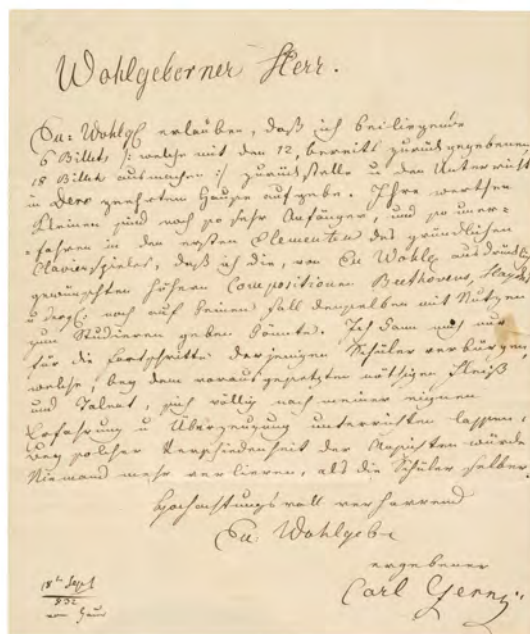 Wohlgeborner Herr.
Eu: Wohlg erlauben, daß ich beiliegende
6 Billets /: welche mit den 12, bereits zurückgegebenen
18 Billet ausmachen :/ zurückstelle u den Unterricht
in Dero geehrtem Hause aufgebe. Ihre werthen
Kleinen sind noch so sehr Anfänger, und so uner-
-fahren in den ersten Elementen des gründlichen
Clavierspieles, daß ich die, von Eu Wohlg ausdrücklich
gewünschten höhern Compositionen Beethovens, Haydns
u dergl: noch auf keinen Fall denselben mit Nutzen
zum Studieren geben könnte. Ich kann mich nur
für die Fortschritte derjenigen Schüler verbürgen,
welche, bey dem vorausgesetzten nöthigen Fleiß
und Talent, sich völlig nach meiner eignen
Erfahrung u Überzeugung unterrichten lassen.
Bey solcher Verschiedenheit der Ansichten würde
Niemand mehr verlieren, als die Schüler selber.
Hochachtungsvoll verharrend
Eu: Wohlgeb
ergebener
Carl Czerny
18t Sept
832
von Haus